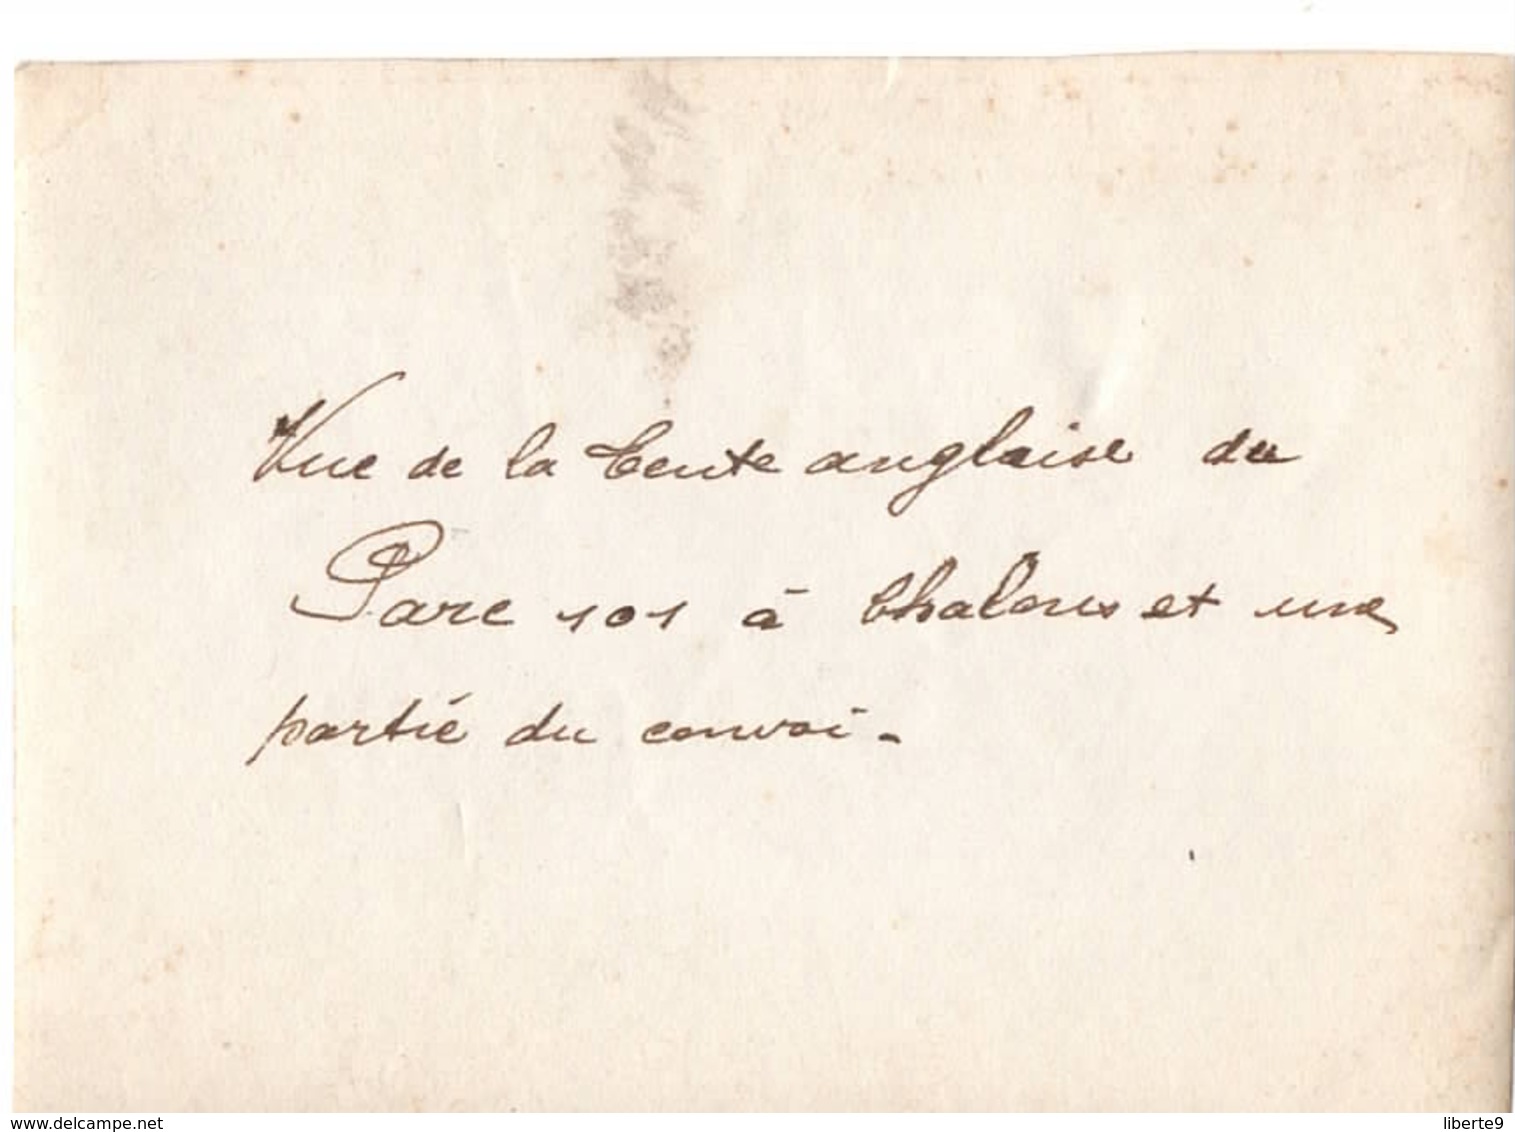 Vue de la tente anglaise du
Parc 101 à Chalons et une
partie du convoi.
www.delcampe.net
liberte9